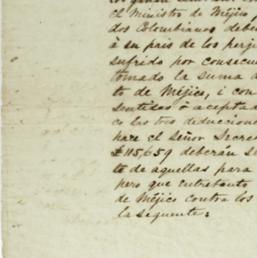 el Ministro de Méjico,
dos Colombianos debe
à su pais de los perj
sufrido por consecu
tomado la suma d
to de Méjico, i con
sentidos ó aceptad
co las tres deduccione
hace el Señor Secre
£115,659 deberán se
to de aquellas para
pero que entretanto
de Méjico contra los
la siguiente: